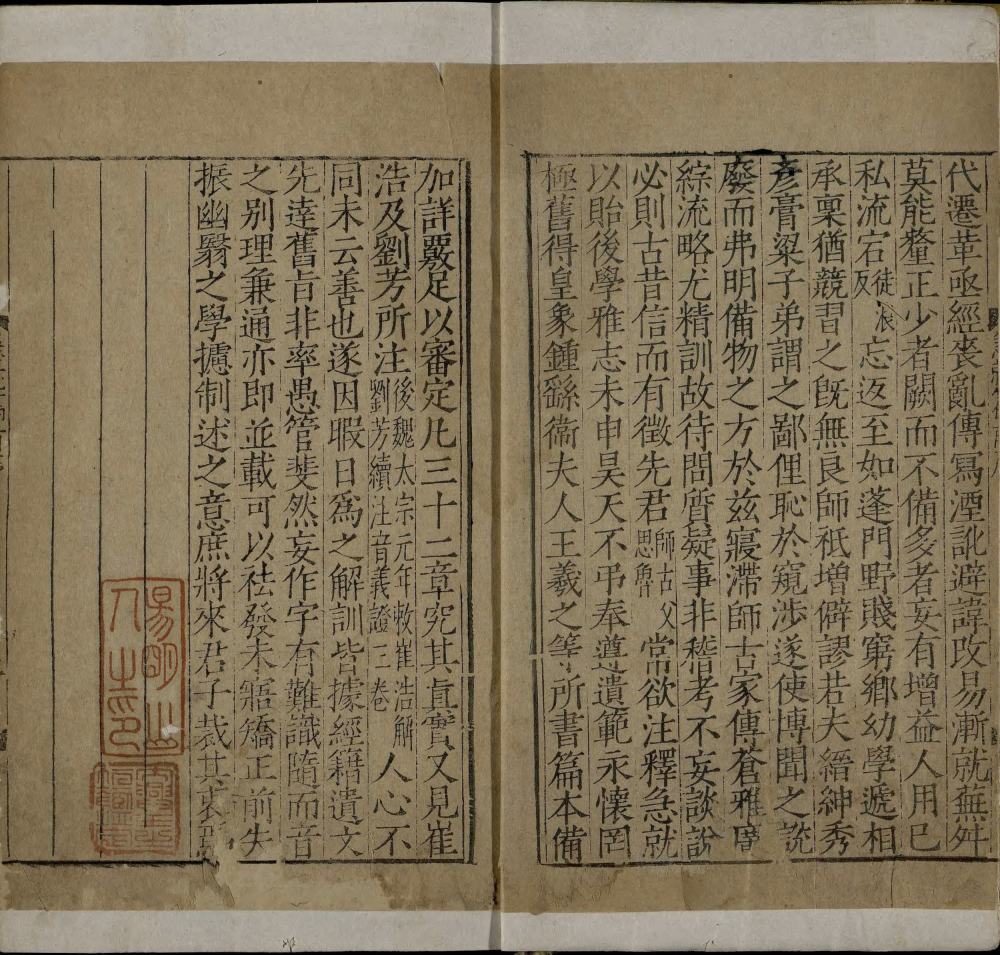 代遷革亟經喪亂傳寫湮訛避諱改易漸就蕪舛
莫能釐正少者闕而不備多者妄有增益人用己
私流宕徒浪反忘返至如蓬門野賤窮鄉幼學遞相
承稟猶競習之旣無良師祇增僻謬若夫縉紳秀
彥膏粱子弟謂之鄙俚恥於窺涉遂使博聞之說
廢而弗明備物之方於兹寢滯師古家傳蒼雅廣
綜流略尤精訓故待問質疑事非稽考不妄談說
必則古昔信而有徵先君師古父思魯常欲注釋急就
以貽後學雅志未申昊天不弔奉遵遺範永懷罔
極舊得皇象鍾繇衞夫人王羲之等所書篇本備
加詳覈足以審定凡三十二章究其眞實又見崔
浩及劉芳所注後魏太宗元年敕崔浩解劉芳續注音義證三卷人心不
同未云善也遂因暇日爲之解訓皆據經籍遺文
先達舊旨非率愚管斐然妄作字有難識隨而音
之别理兼通亦即並載可以祛發未寤矯正前失
振幽翳之學攄制述之意庶將來君子裁其衷焉
易明之人之印